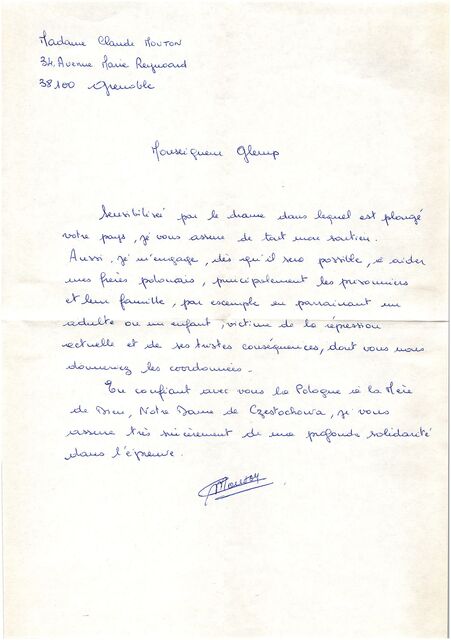 Madame Claude MOUTON
34. Avenue Marie Reynoard
38100 Grenoble
Monseigneur Glemp
Sensibilisé par le drame dans lequel est plongé
votre pays, je vous assure de tout mon soutien.
Aussi je m'engage, dès qu'il sera possible, à aider
mes frères polonais, principalement les prisonniers
et leur famille, par exemple en parrainant un
adulte ou un enfant, victime de la répression
actuelle et de ses tristes conséquences, dont vous nous
donneriez les coordonnées.
En confiant avec vous la Pologne à la Mère
de Dieu, Notre Dame de Czestochowa, je vous
assure très sincèrement de ma profonde solidarité
dans l'épreuve.